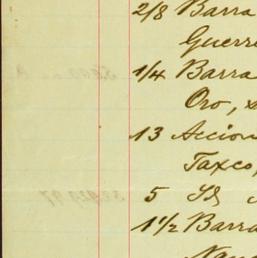 2/8 Barra
Guerre
1/4 Barra
Oro, s
13 Accion
Taxco,
5 Id
1 1/2 Barra